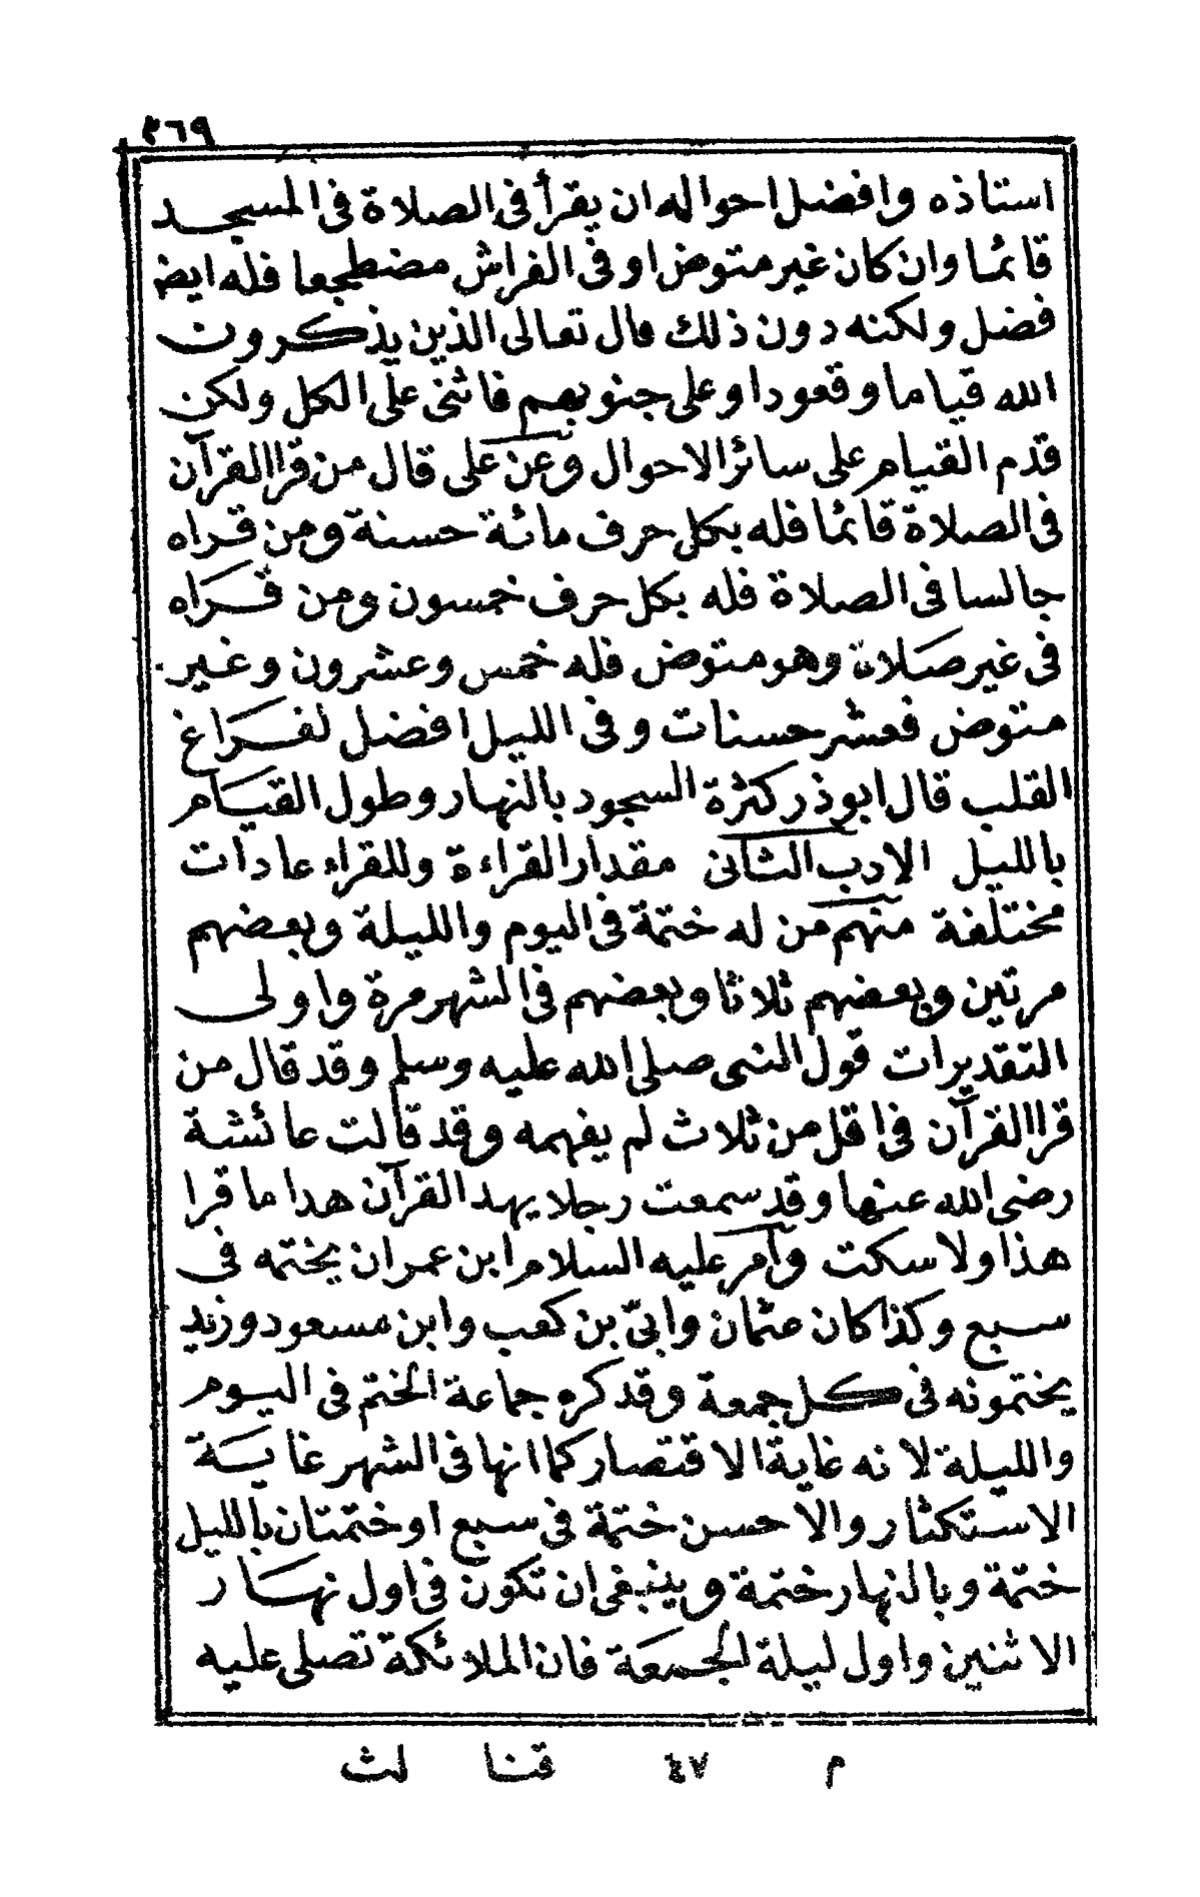 ٣٦٩
استاذه وافضل احواله ان يقرأ فى الصلاة فى المسجد
قائما وان كان غير متوض او فى الفراش مضطجعا فله ايض
فضل ولكنه دون ذلك قال تعالى الذين يذكرون
الله قياما وقعودا وعلى جنوبهم فاثنى على الكل ولكن
قدم القيام على سائر الاحوال وعن على قال من قرا القرآن
فى الصلاة قائما فله بكل حرف مائة حسنة ومن قراه
جالسا فى الصلاة فله بكل حرف خمسون ومن قراه
فى غير صلاة وهو متوض فله خمس وعشرون وغير
متوض فعشر حسنات وفى الليل افضل لفراغ
القلب قال ابوذر كثرة السجود بالنهار وطول القيام
بالليل الادب الثانى مقدار القراءة وللقراء عادات
مختلفة منهم من له ختمة فى اليوم والليلة وبعضهم
مرتين وبعضهم ثلاثا وبعضهم فى الشهر مرة واولى
التقديرات قول النبى صلى الله عليه وسلم وقد قال من
قرا القرآن فى اقل من ثلاث لم يفهمه وقد قالت عائشة
رضى الله عنها وقد سمعت رجلا يهد القرآن هدا ما قرا
هذا ولا سكت وامر عليه السلام ابن عمران يختمه فى
سبع وكذا كان عثمان وابىّ بن كعب وابن مسعود وزيد
يختمونه فى كل جمعة وقد كره جماعة الختم فى اليوم
والليلة لانه غاية الاقتصار كما انها فى الشهر غاية
الاستكثار والاحسن ختمة فى سبع او ختمتان بالليل
ختمة وبالنهار ختمة وينبغى ان تكون فى اول نهار
الاثنين واول ليلة الجمعة فان الملائكة تصلى عليه
م ٤٧ قنا لث